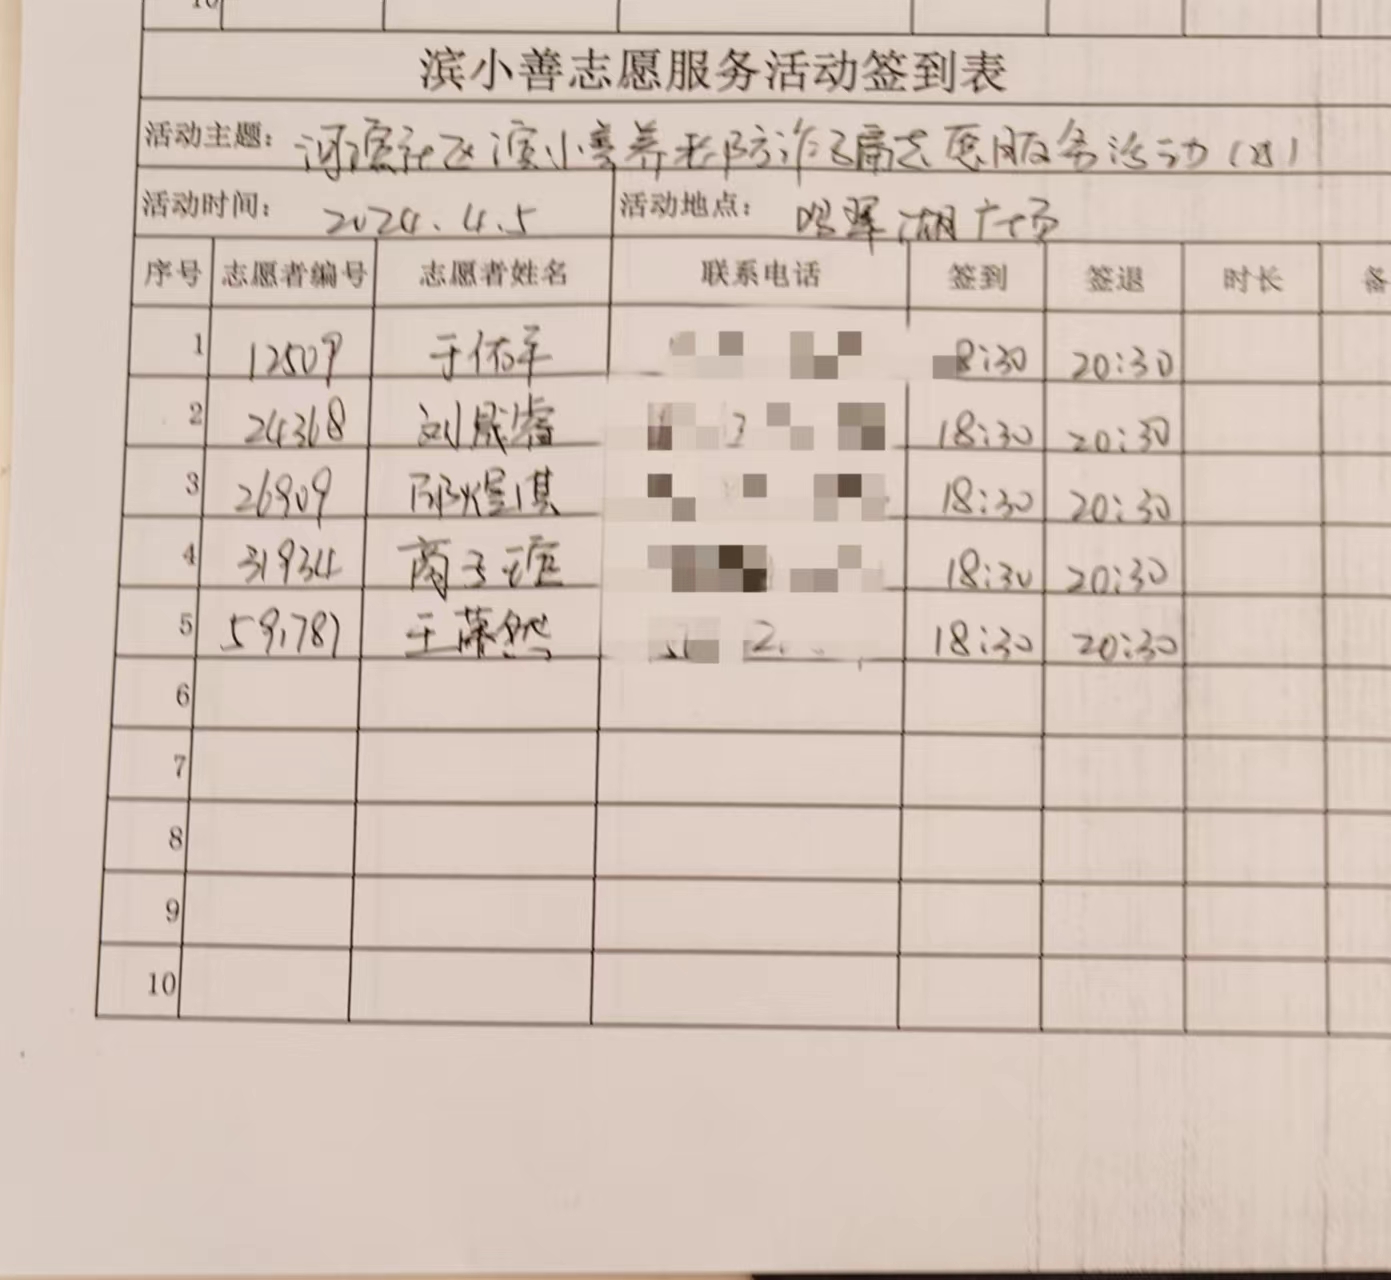 10
滨小善志愿服务活动签到表
活动主题: 河滨社区滨小善养老防诈骗志愿服务活动(四)
活动时间: 2024.4.5 活动地点: 晖湖广场
序号 志愿者编号 志愿者姓名 联系电话 签到 签退 时长 备
1 12509 于佑平 8:30 20:30
2 24368 刘晟睿 18:30 20:30
3 26909 邵煜淇 18:30 20:30
4 31934 商子 18:30 20:30
5 59787 王萧然 18:30 20:30
6
7
8
9
10